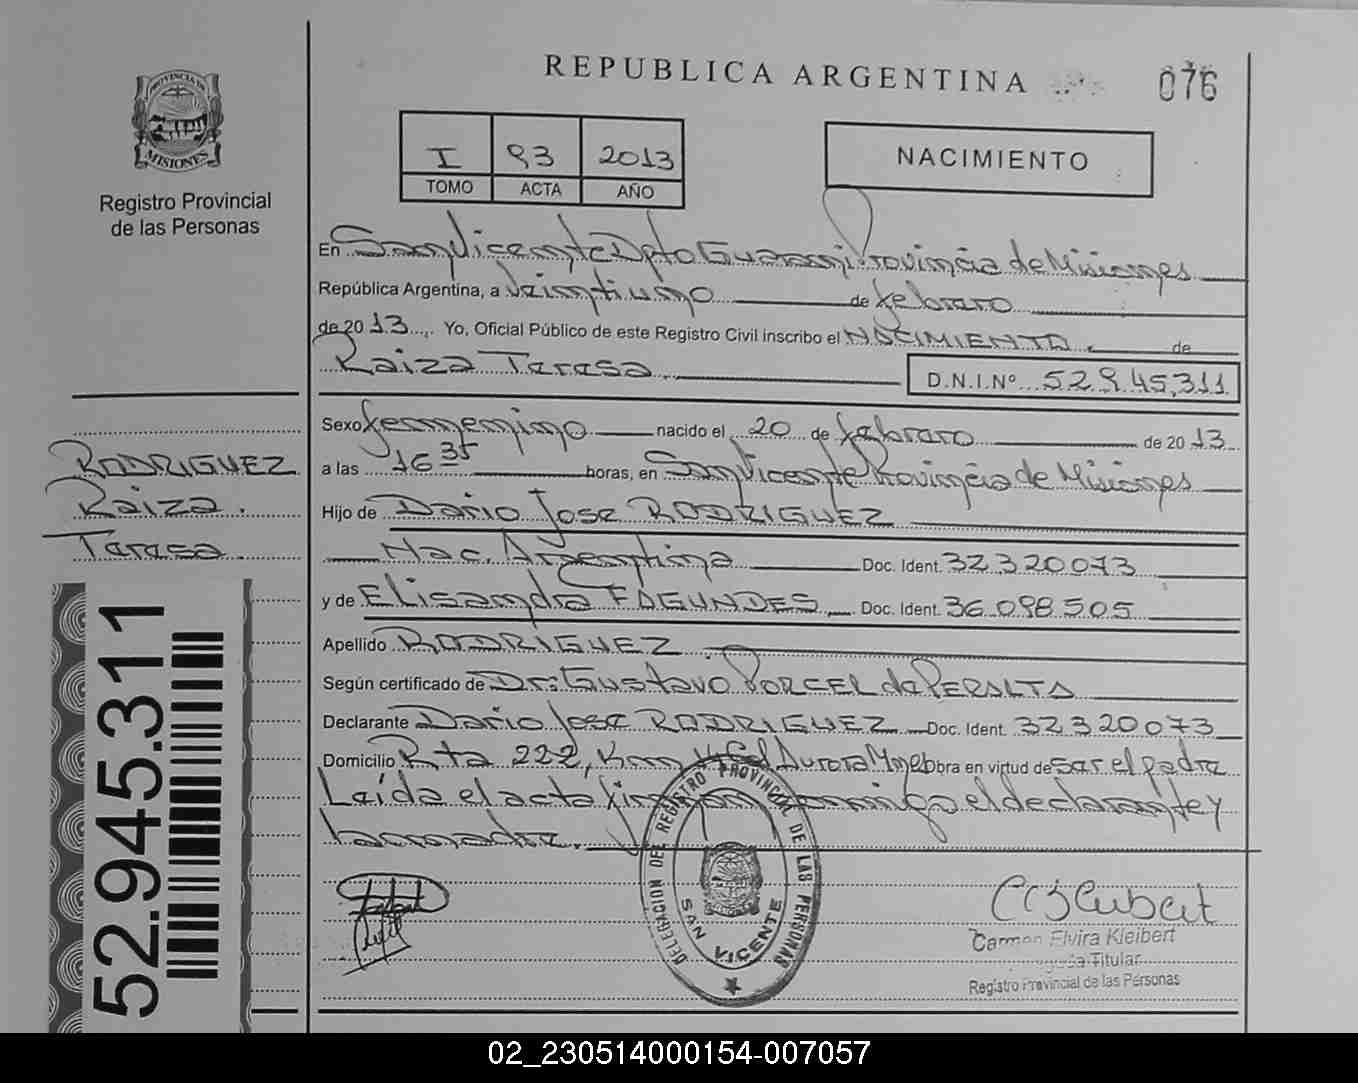 REPUBLICA ARGENTINA
076
PROVINCIA DE
MISIONES
Registro Provincial
de las Personas
I 93 2013
TOMO ACTA AÑO
NACIMIENTO
En San Vicente Dpto Guarani Provincia de Misiones
República Argentina, a Veintiuno de febrero
de 20 13 Yo, Oficial Público de este Registro Civil inscribo el NACIMIENTO de
Raiza Teresa
D.N.I.Nº 52.945.311
Sexo femenino nacido el 20 de febrero de 20 13
a las 16 35 horas, en San Vicente Provincia de Misiones
Hijo de Dario Jose RODRIGUEZ
Nac. Argentina Doc. Ident. 32320073
y de Elisandra FAGUNDES Doc. Ident. 36.098.505
Apellido RODRIGUEZ
Según certificado de Dr: Gustavo PORCEL de PERALTA
Declarante Dario Jose RODRIGUEZ Doc. Ident. 32320073
Domicilio Rta 222, Km Aurora obra en virtud de ser el padre
Leída el acta firman el declarante y
la madre.
RODRIGUEZ
Raiza
Teresa
52.945.311
DELEGACION DEL REGISTRO PROVINCIAL DE LAS PERSONAS
SAN VICENTE
Carmen Elvira Kleibert
Titular
Registro Provincial de las Personas
02_230514000154-007057